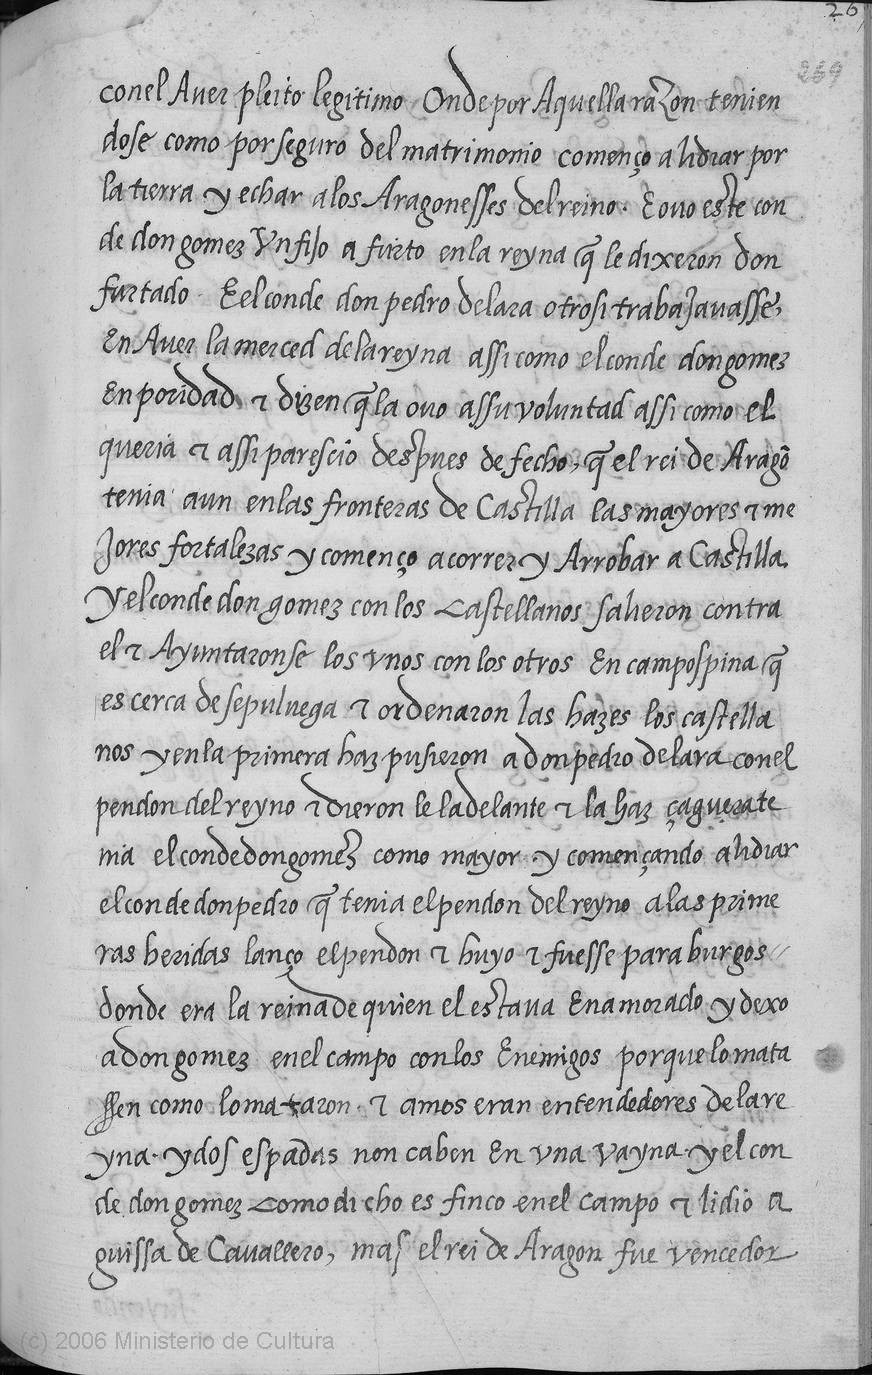 26
269
con el Aver pleito legitimo Onde por Aquella raZon tenien
dose como por seguro del matrimonio començo a lidiar por
la tierra y echar a los Aragonesses del reino. E ovo este con
de don gomez Vn fijo a furto en la reyna q̃ le dixeron don
furtado. E el conde don pedro de lara otrosi trabaJavasse,
En Aver la merced de la reyna assi como el conde don gomez
En poridad, τ dizen q̃ la ovo assu voluntad assi como el
queria τ assi parescio despues de fecho, q̃ el rei de Aragõ
tenia aun en las fronteras de Castilla las mayores τ me
Jores fortalezas y començo a correr y Arrobar a Castilla.
Y el conde don gomez con los Castellanos salieron contra
el τ Ayuntaronse los vnos con los otros En campospina q̃
es cerca de sepulvega τ ordenaron las hazes los castella
nos y en la primera haz pusieron a don pedro de lara con el
pendon del reyno τ dieron le la delante τ la haz çaguera te
nia el conde don gomeZ como mayor. y començando a lidiar
el conde don pedro q̃ tenia el pendon del reyno a las prime
ras heridas lanço el pendon τ huyo τ fuesse para burgos //
donde era la reina de quien el estava Enamorado y dexo
a don gomez en el campo con los Enemigos porque lo mata
ssen como lo mataron. τ amos eran entendedores de la re
yna. y dos espadas non caben En vna vayna. y el con
de don gomez Como dicho es finco en el campo τ lidio a
guissa de Cavallero, mas el rei de Aragon fue vencedor
(c) 2006 Ministerio de Cultura